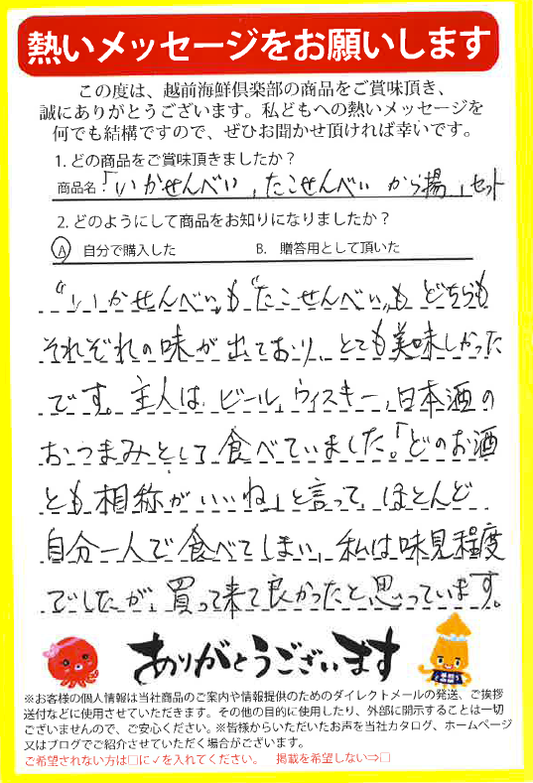 熱いメッセージをお願いします
この度は、越前海鮮倶楽部の商品をご賞味頂き、
誠にありがとうございます。私どもへの熱いメッセージを
何でも結構ですので、ぜひお聞かせ頂ければ幸いです。
1. どの商品をご賞味頂きましたか?
商品名:「いかせんべい、たこせんべい から揚」セット
2. どのようにして商品をお知りになりましたか?
A 自分で購入した B. 贈答用として頂いた
“いかせんべい„も“たこせんべい„も どちらも
それぞれの味が出ており、とても美味しかった
です。主人は ビール、ウィスキー、日本酒の
おつまみとして食べていました。「どのお酒
とも相称がいいね」と言って、ほとんど
自分一人で食べてしまい、私は味見程度
でしたが、買って来て良かったと思っています。
ありがとうございます
※お客様の個人情報は当社商品のご案内や情報提供のためのダイレクトメールの発送、ご挨拶
送付などに使用させていただきます。その他の目的に使用したり、外部に開示することは一切
ございませんので、ご安心ください。※皆様からいただいたお声を当社カタログ、ホームページ
又はブログでご紹介させていただく場合がございます。
ご希望されない方は□に✓を入れてください。 掲載を希望しない⇒□